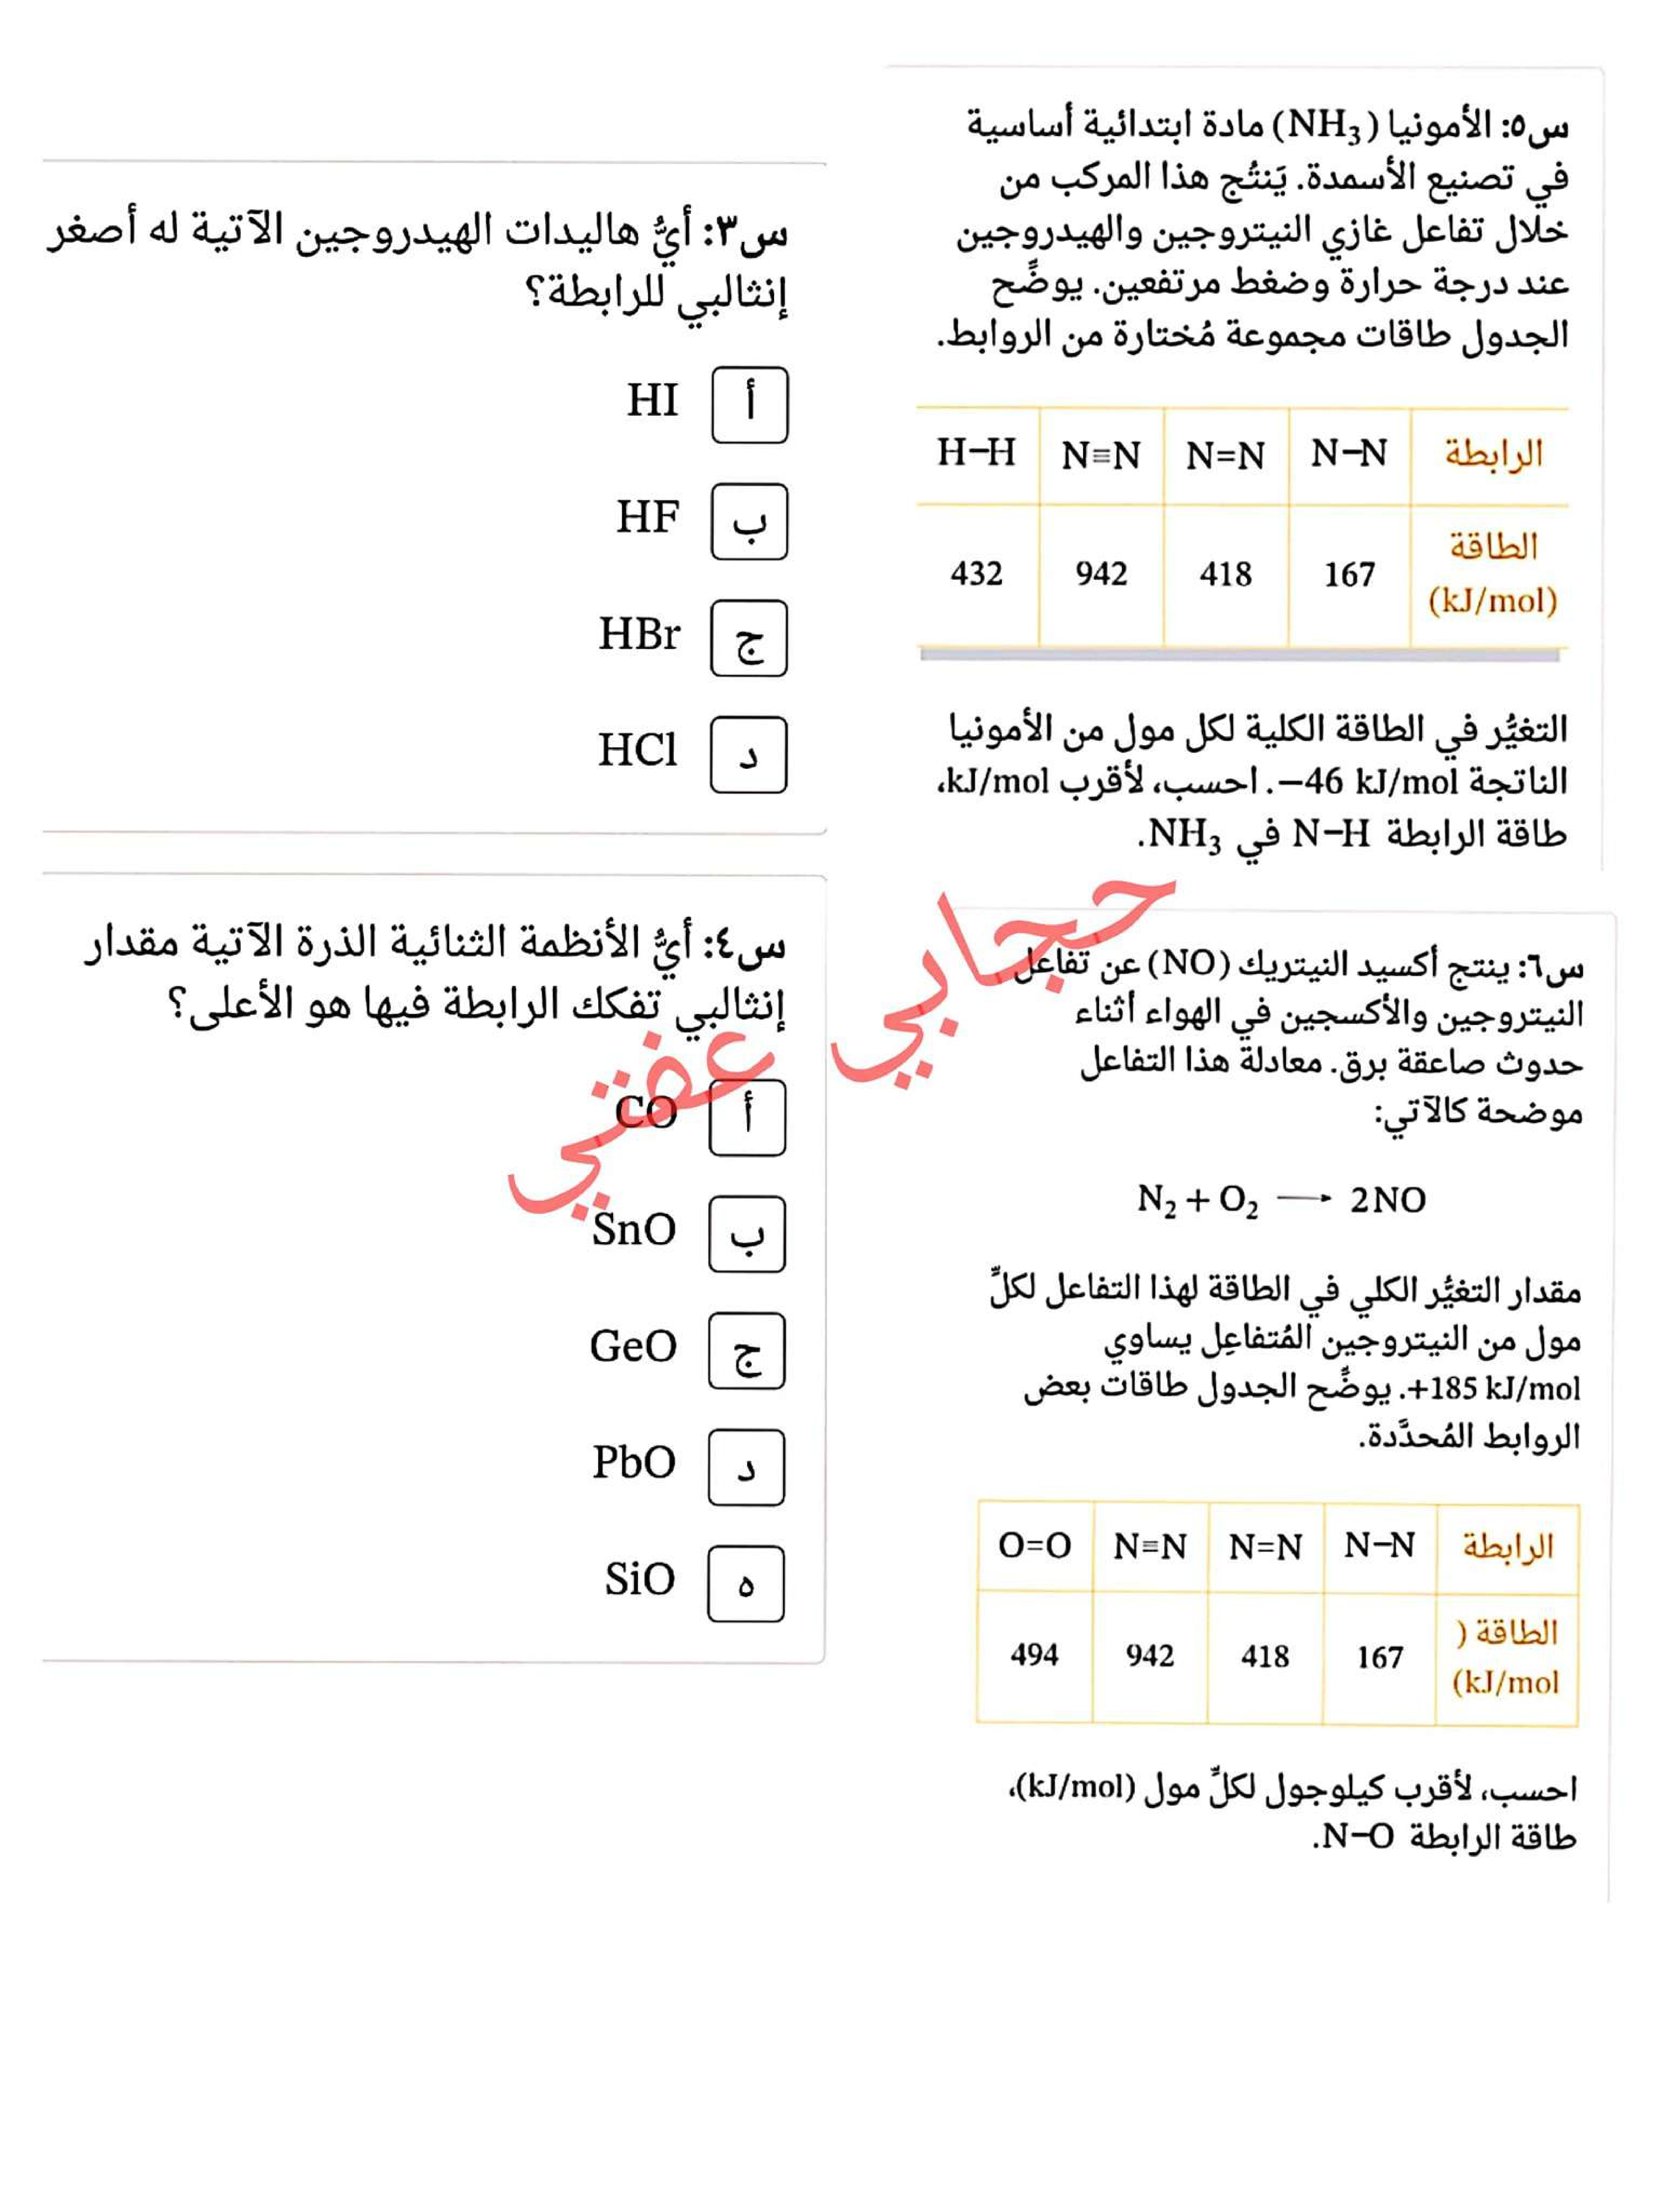 س٥: الأمونيا (NH₃) مادة ابتدائية أساسية
في تصنيع الأسمدة. يَنتُج هذا المركب من
خلال تفاعل غازي النيتروجين والهيدروجين
عند درجة حرارة وضغط مرتفعين. يوضِّح
الجدول طاقات مجموعة مُختارة من الروابط.
الرابطة N−N N=N N≡N H−H
الطاقة (kJ/mol) 167 418 942 432
التغيُّر في الطاقة الكلية لكل مول من الأمونيا
الناتجة −46 kJ/mol. احسب، لأقرب kJ/mol،
طاقة الرابطة N−H في NH₃.
س٦: ينتج أكسيد النيتريك (NO) عن تفاعل
النيتروجين والأكسجين في الهواء أثناء
حدوث صاعقة برق. معادلة هذا التفاعل
موضحة كالآتي:
N₂ + O₂ ⟶ 2NO
مقدار التغيُّر الكلي في الطاقة لهذا التفاعل لكلِّ
مول من النيتروجين المُتفاعِل يساوي
+185 kJ/mol. يوضِّح الجدول طاقات بعض
الروابط المُحدَّدة.
الرابطة N−N N=N N≡N O=O
الطاقة (kJ/mol) 167 418 942 494
احسب، لأقرب كيلوجول لكلِّ مول (kJ/mol)،
طاقة الرابطة N−O.
س٣: أيُّ هاليدات الهيدروجين الآتية له أصغر
إنثالبي للرابطة؟
أ HI
ب HF
ج HBr
د HCl
س٤: أيُّ الأنظمة الثنائية الذرة الآتية مقدار
إنثالبي تفكك الرابطة فيها هو الأعلى؟
أ CO
ب SnO
ج GeO
د PbO
ه SiO
حجابي عفتي